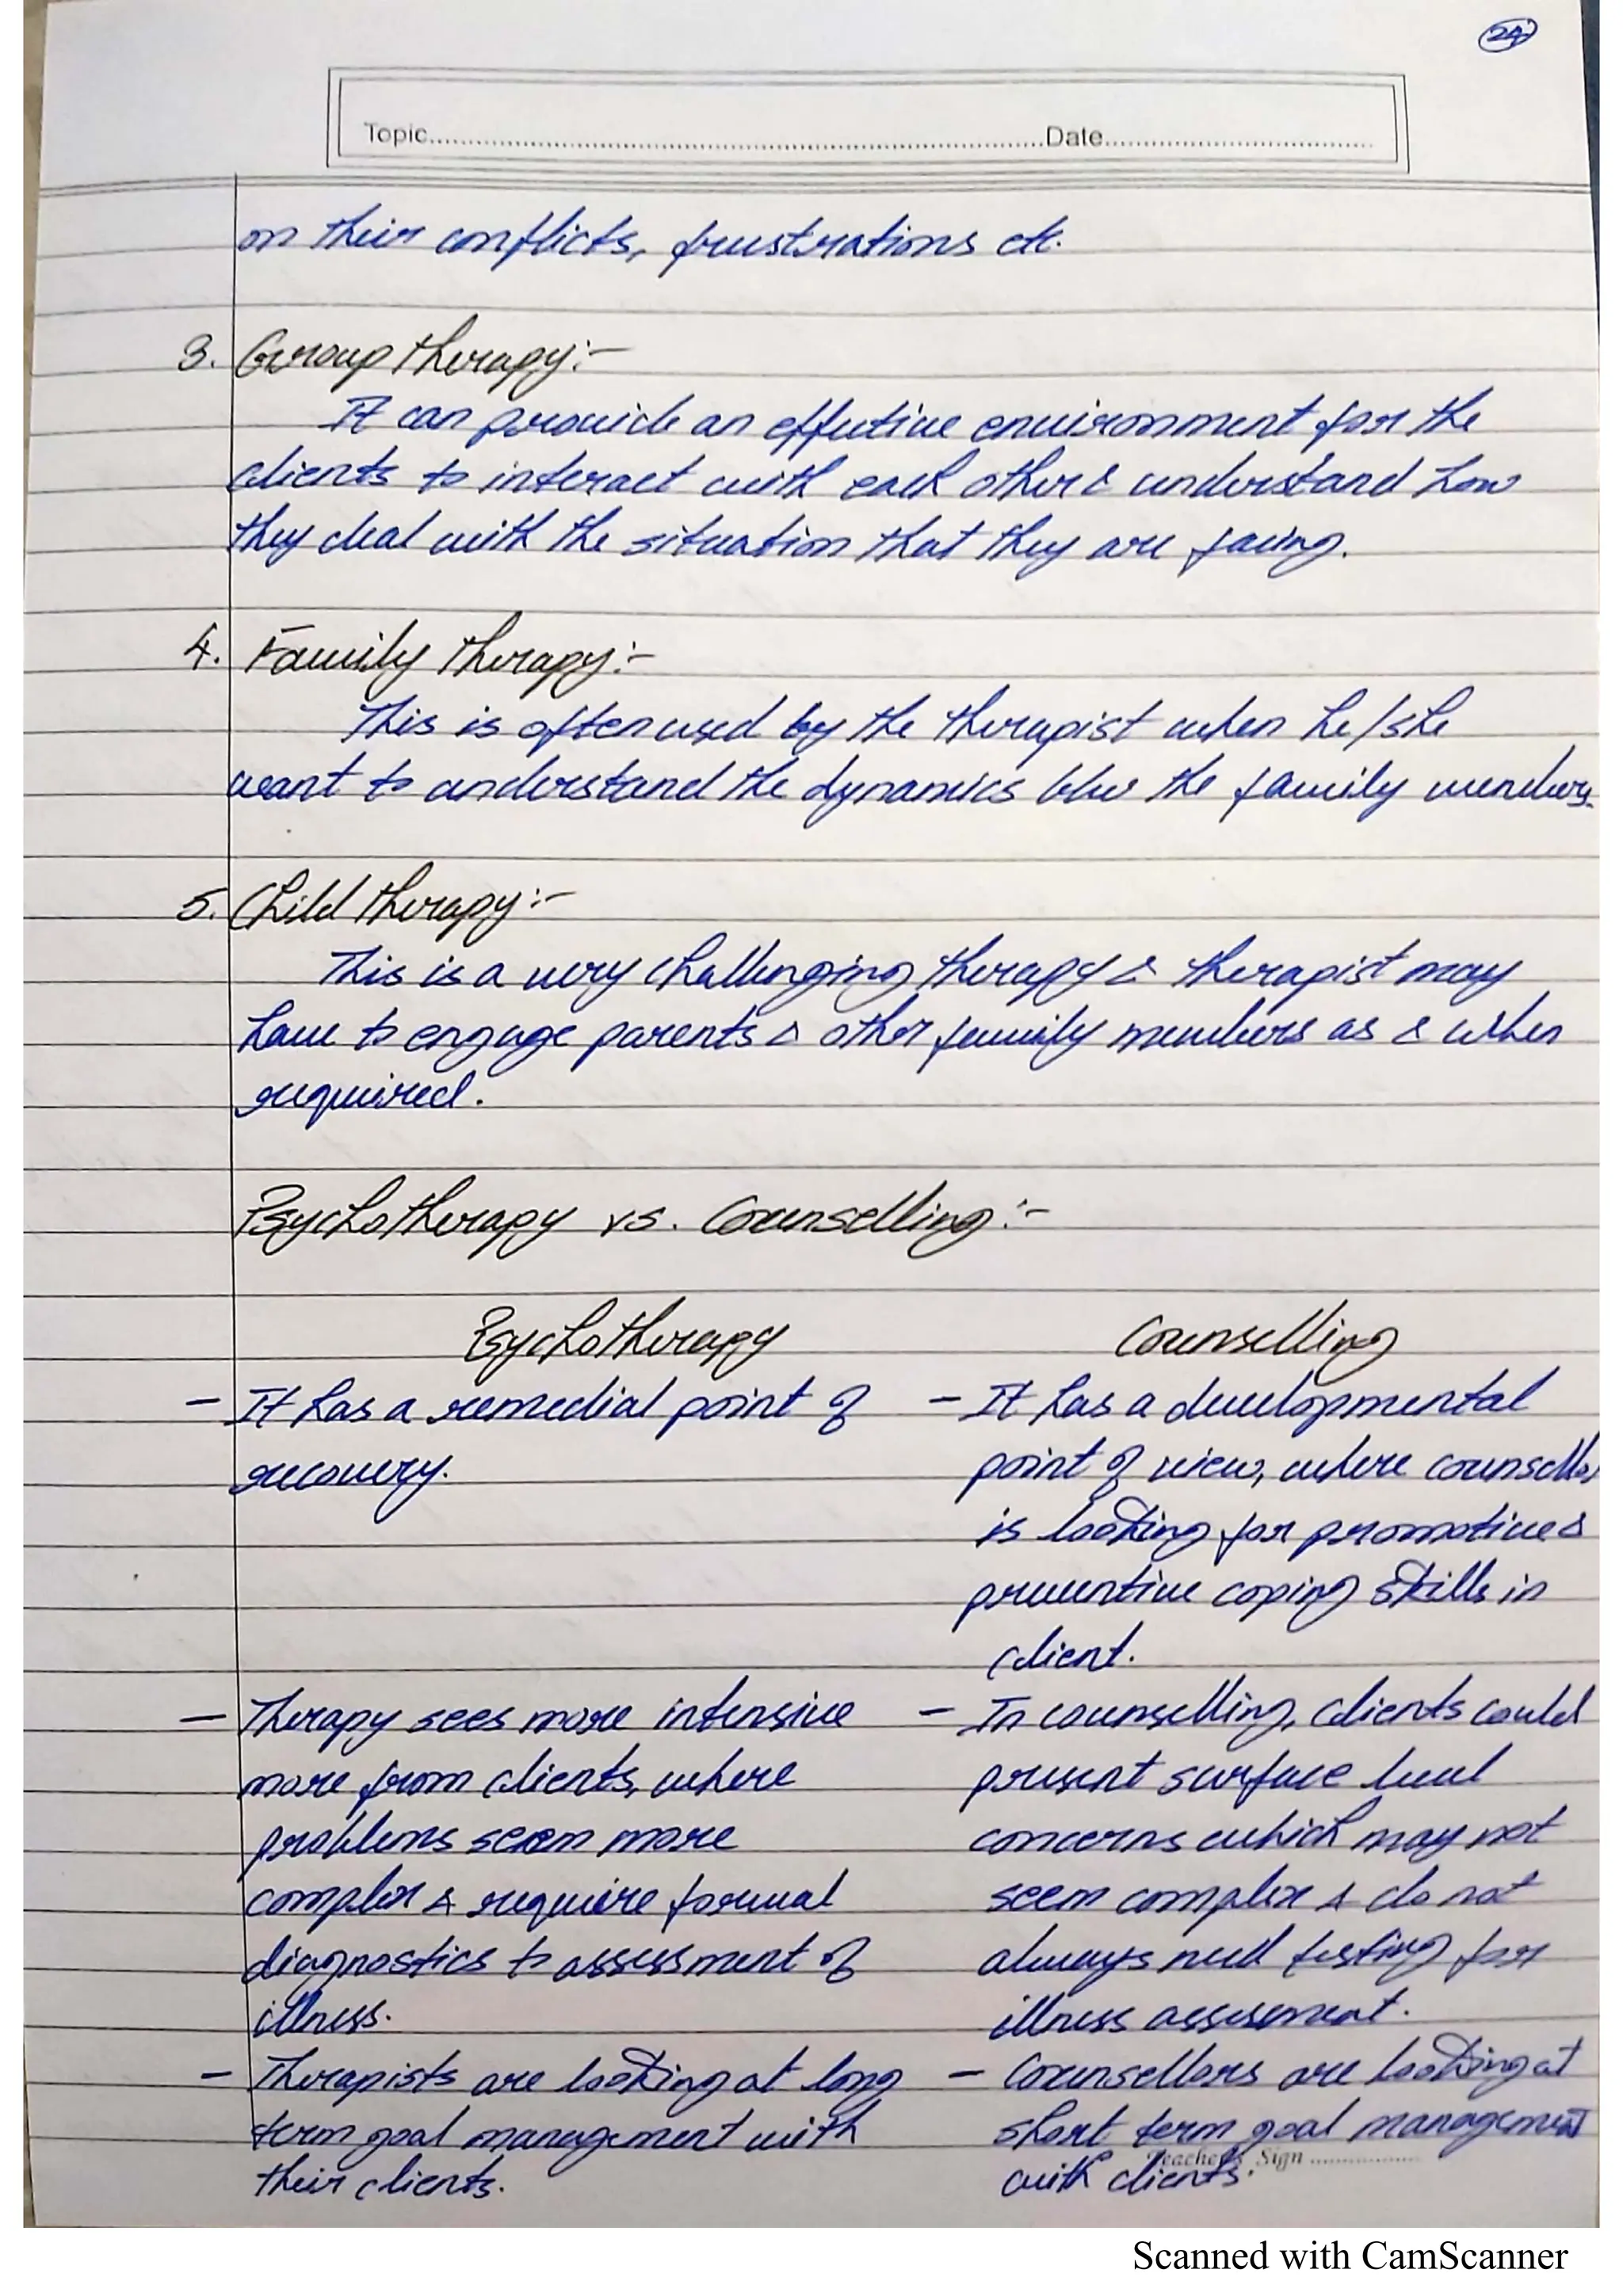 24
Topic..........Date..........
on their conflicts, frustrations etc.
3. Group therapy:-
It can provide an effective environment for the
clients to interact with each other & understand how
they deal with the situation that they are facing.
4. Family therapy:-
This is often used by the therapist when he/she
want to understand the dynamics b/w the family members.
5. Child therapy:-
This is a very challenging therapy & therapist may
have to engage parents & other family members as & when
required.
Psychotherapy vs. Counselling:-
Psychotherapy
- It has a remedial point of
recovery.
- Therapy sees more intensive
more from clients, where
problems seem more
complex & require formal
diagnostics to assessment of
illness.
- Therapists are looking at long
term goal management with
their clients.
Counselling
- It has a developmental
point of view, where counsellor
is looking for promotive &
preventive coping skills in
client.
- In counselling, clients could
present surface level
concerns which may not
seem complex & do not
always need testing for
illness assesment.
- Counsellors are looking at
short term goal management
with clients.
Teacher's Sign ..........
Scanned with CamScanner